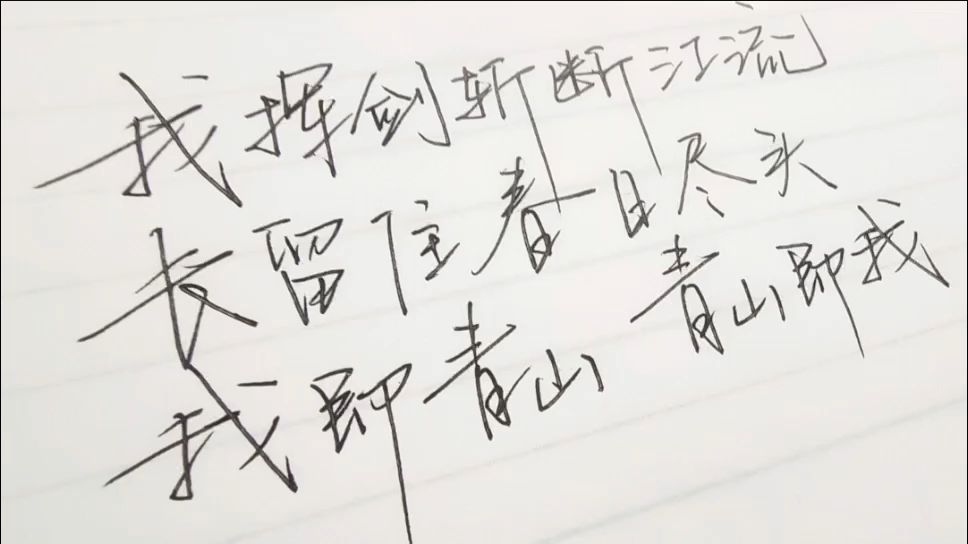 我挥剑斩断江流
长留住春日尽头
我即青山 青山即我